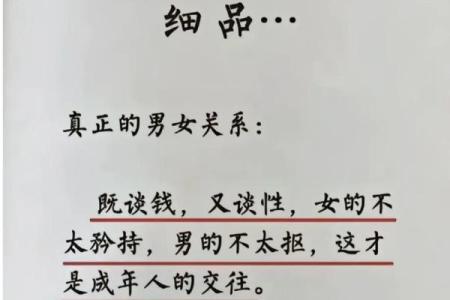 细品…
真正的男女关系：
既谈钱，又谈性，女的不
太矜持，男的不太抠，这才
是成年人的交往。